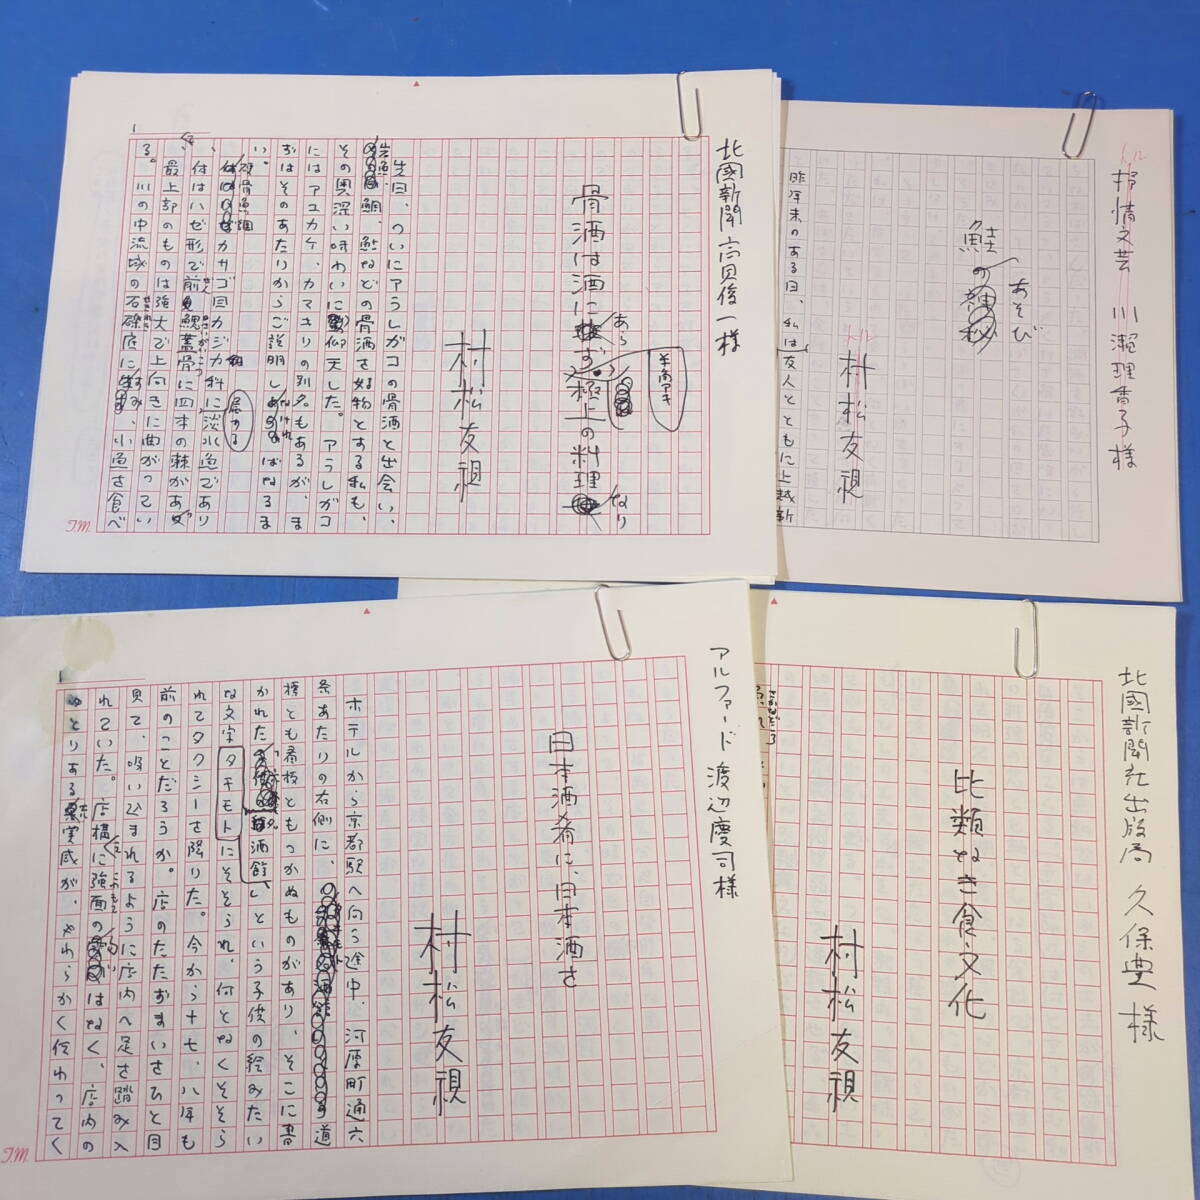 北國新聞 高貝俊一様
骨酒は酒に
あら
ず 極上の料理
なり
半角アキ
村松友視
先日、ついにアラレガコの骨酒と出会い、
岩魚、鯛、鮎などの骨酒を好物とする私も、
その奥深い味わいに仰天した。アラレガコ
にはアユカケ、カマキリの別名もあるが、ま
ずはそのあたりからご説明しなければなるま
い。
硬骨魚綱カサゴ目カジカ科に属する淡水魚であり
、体はハゼ形で前鰓蓋骨に四本の棘があって
最上部のものは強大で上向きに曲がってい
る。川の中流域の石礫底にすみ、小魚を食べ
T.M.
抒情文芸 川瀬理香子様
鮭のあそび
村松友視
昨年末のある日、私は友人とともに上越新
アルファード 渡辺慶司様
日本酒肴に、日本酒を
村松友視
ホテルから京都駅へ向う途中、河原町通六
条あたりの右側に、道
標とも看板ともつかぬものがあり、そこに書
かれた
酒館しという子供の絵みたい
な文字タキモトにそそられ、何となくそそら
れてタクシーを降りた。今から十七、八年も
前のことだろうか。店のたたずまいさひと目
見て、吸い込まれるように店内へ足を踏み入
れていた。店構えに強面の
はなく、店内の
ゆとりある実感が、やわらかく伝わってく
T.M.
北國新聞社出版局 久保豊様
比類なき食文化
村松友視